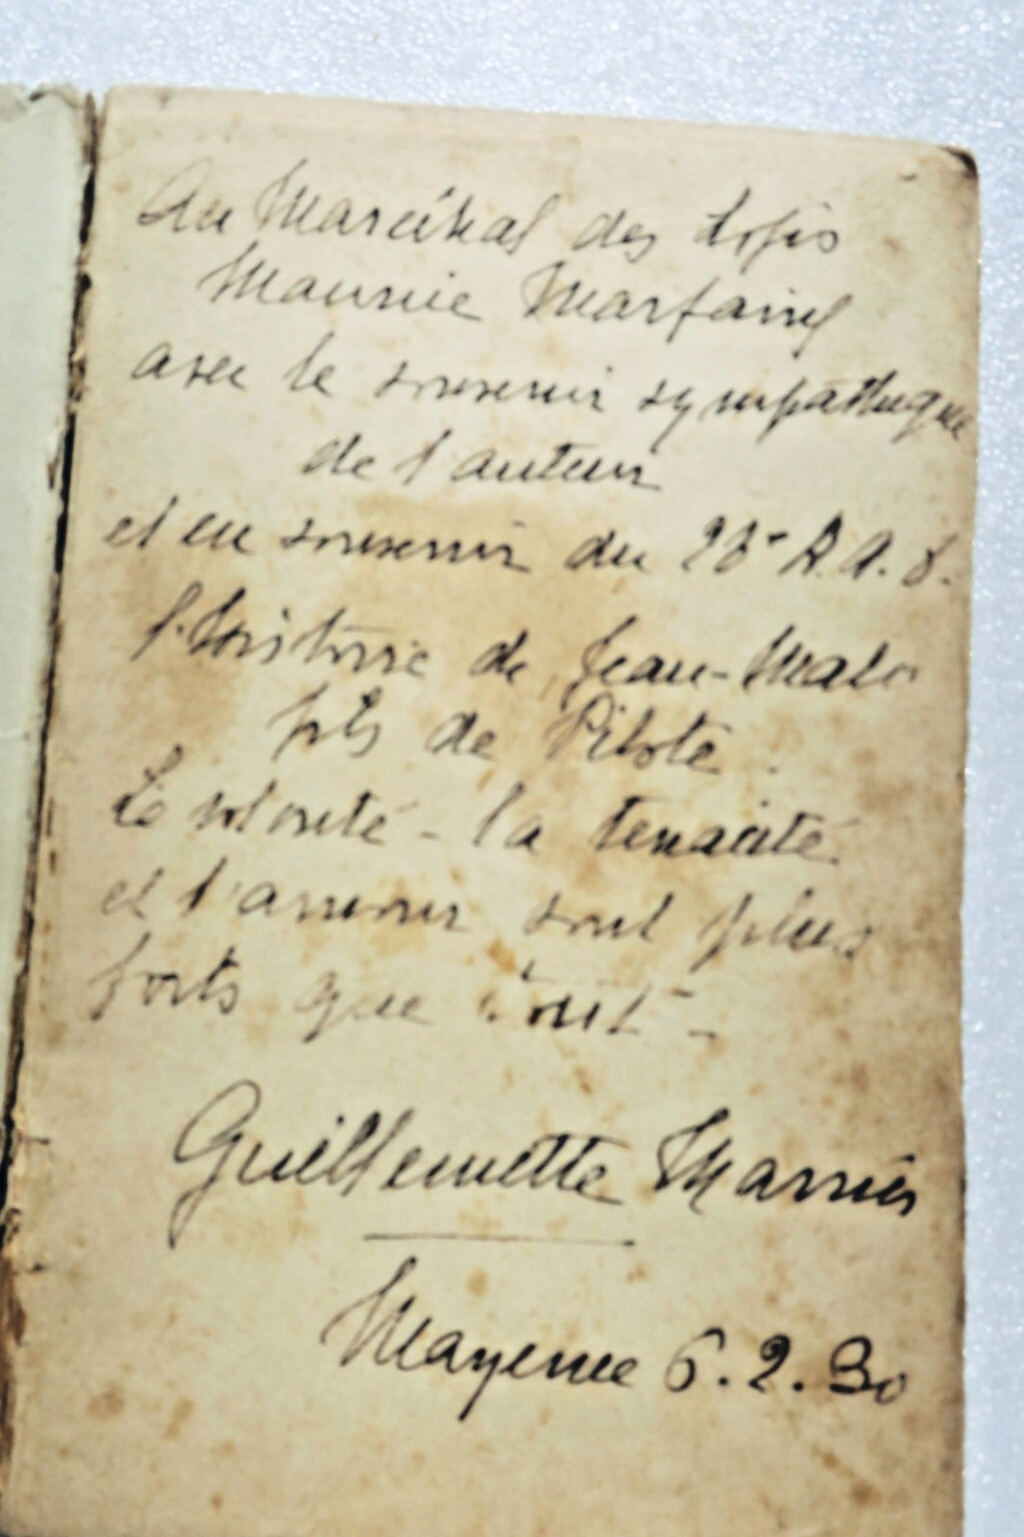 Au Maréchal des Logis
Maurice Marfaing
avec le souvenir sympathique
de l'auteur
et en souvenir du 28e R.A.
l'histoire de Jean-Malo
fils de Pilote.
La volonté - la tenacité
et l'amour sont plus
forts que tout -
Guillemette Marrier
Mayence 6.2.30